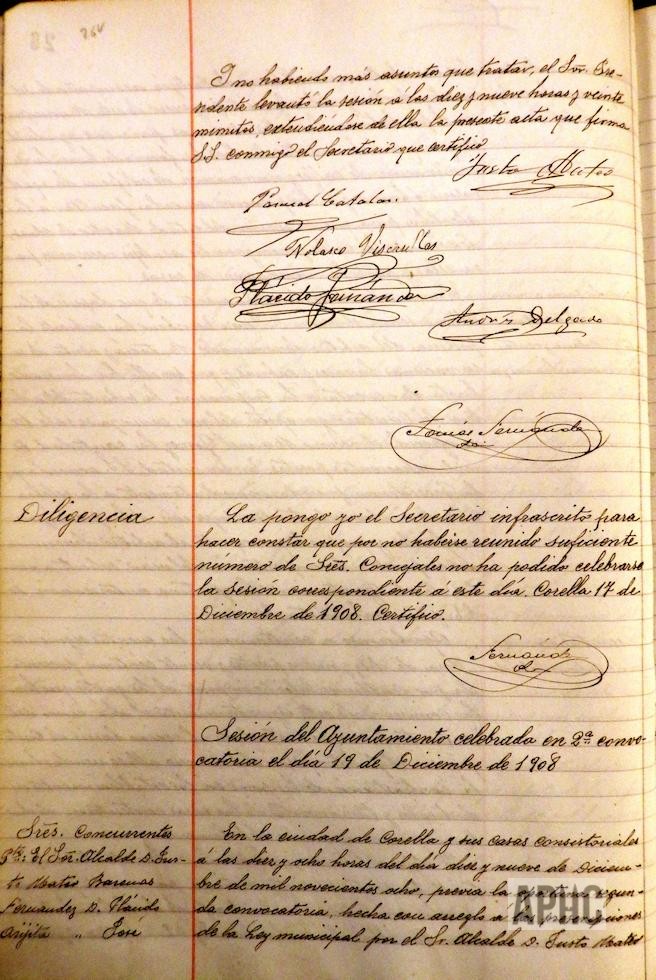 264
I no habiendo más asuntos que tratar, el Sor. Pre-
sidente levantó la sesión á las diez y nueve horas y veinte
minutos, extendiéndose de ella la presente acta que firma
S.S. conmigo el Secretario que certifico
Justo Mateo
Pascual Catalan
Nolasco Viscasillas
Plácido Fernández
Andrés Delgado
Tomás Fernández
Diligencia
La pongo yo el Secretario infrascrito para
hacer constar que por no haberse reunido suficiente
número de Sres. Concejales no ha podido celebrarse
la sesión correspondiente á este día. Corella 17 de
Diciembre de 1908. Certifico.
Fernández
Sesión del Ayuntamiento celebrada en 2ª convo-
catoria el día 19 de Diciembre de 1908
Sres. Concurrentes
Pte: El Sor. Alcalde D. Jus-
to Mateo
Fernandez D. Plácido
Arijita „ José
En la ciudad de Corella y sus casas consistoriales
á las diez y ocho horas del día diez y nueve de Diciem-
bre de mil novecientos ocho, previa la segun-
da convocatoria, hecha con arreglo á las prescripciones
de la Ley municipal por el Sr. Alcalde D. Justo Mateo
APHC